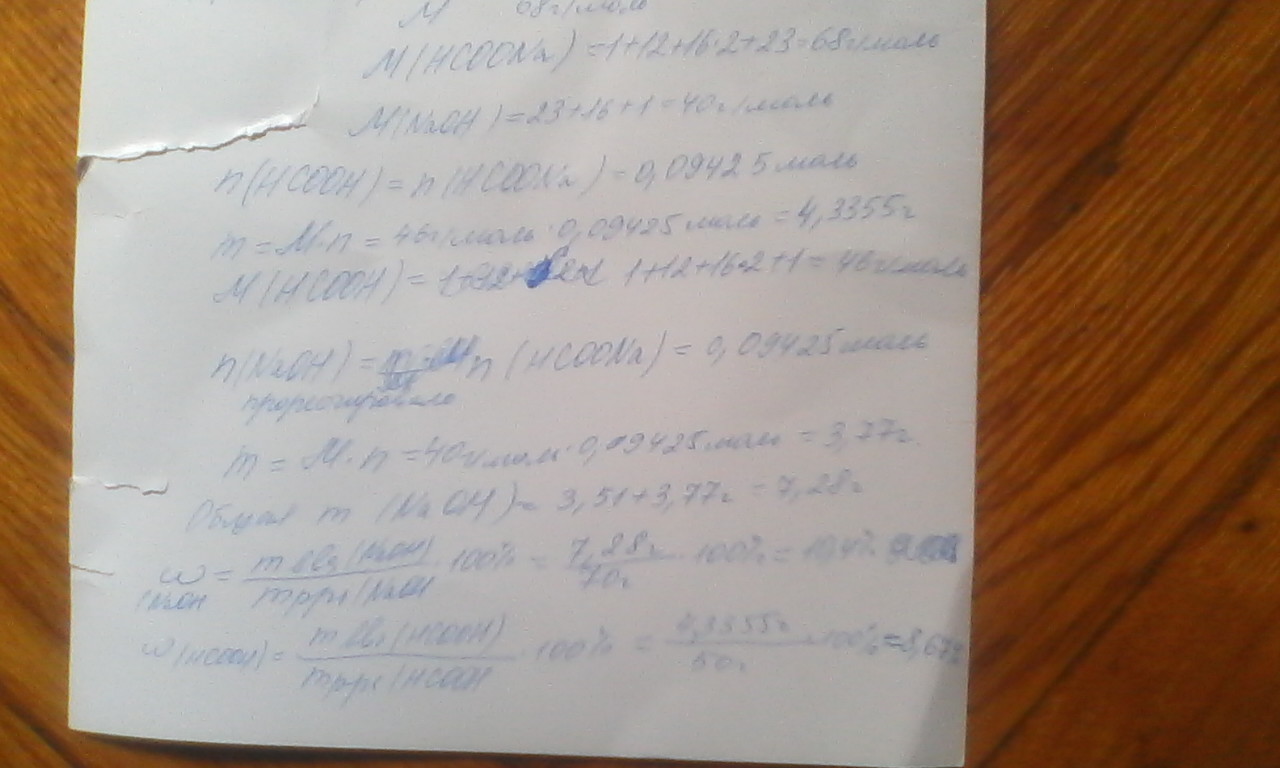 M 68 г/моль
M(HCOONa) = 1+12+16·2+23=68г/моль
M(NaOH) = 23+16+1=40г/моль
n(HCOOH) = n(HCOONa) = 0,09425 моль
m = M·n = 46г/моль·0,09425 моль = 4,3355г
M(HCOOH) = 1+12+16·2+1= 46г/моль
n(NaOH) = n(HCOONa) = 0,09425моль
прореагировало
m = M·n =40г/моль·0,09425моль = 3,77г.
Общая m (NaOH) = 3,51+3,77г = 7,28г
ω (NaOH = m в-ва (NaOH) / m р-ра (NaOH · 100% = 7,28г / 70г · 100% = 10,4%
ω(HCOOH) = m в-ва (HCOOH) / m р-ра (HCOOH · 100% = 4,3355г / 50г · 100% = 8,67%